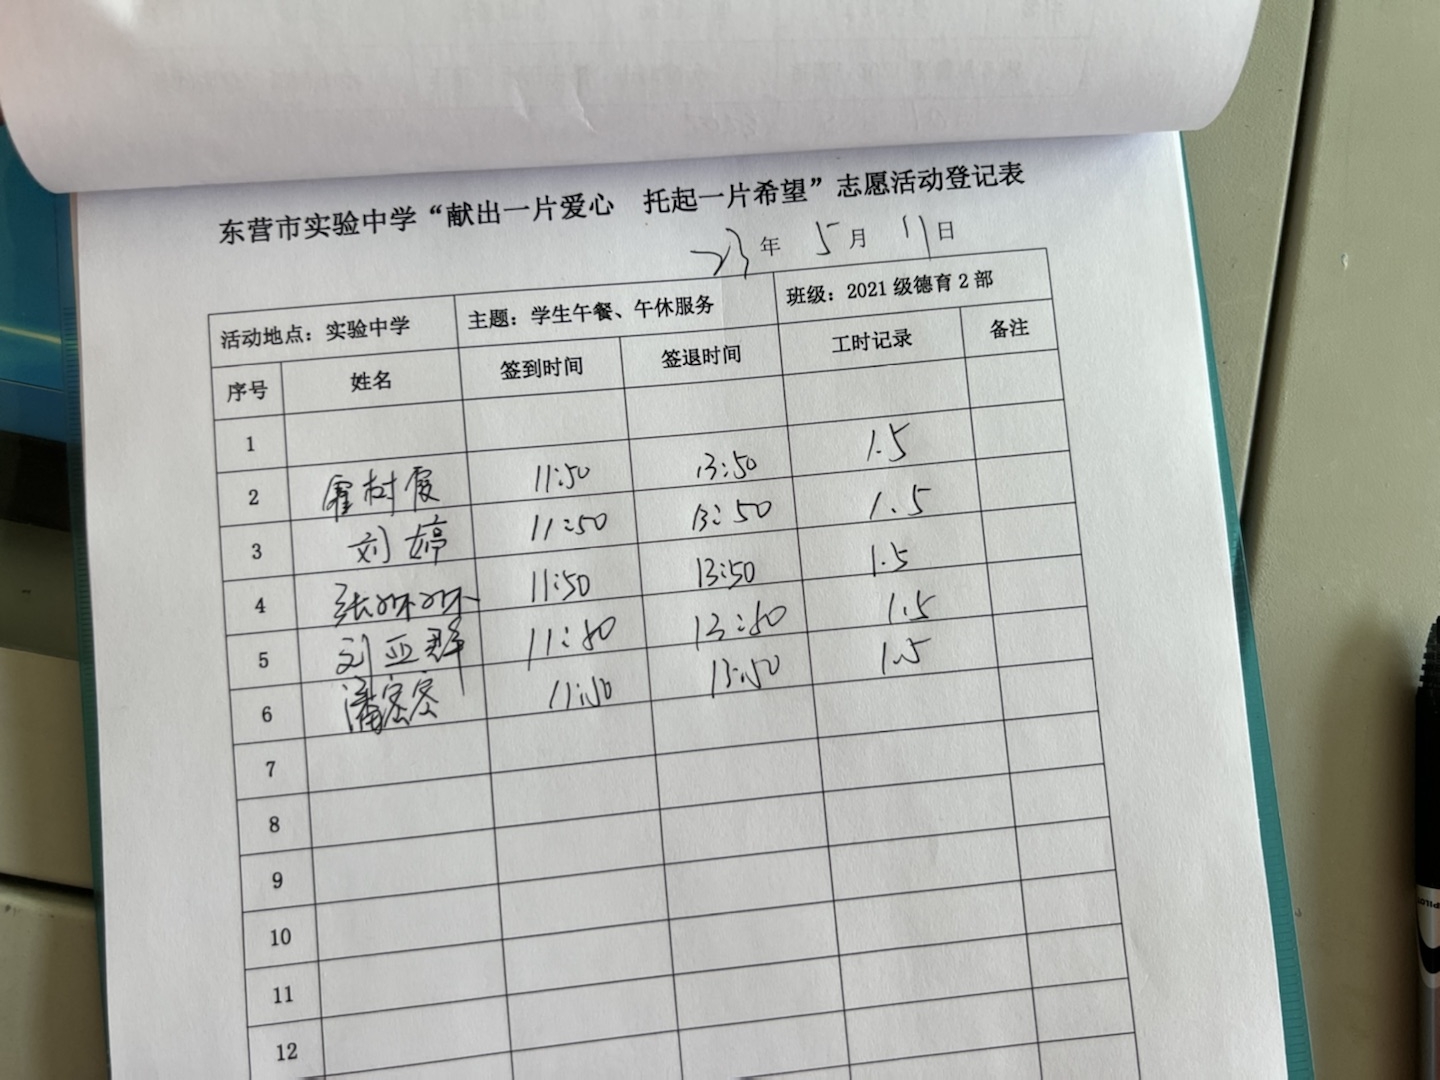 东营市实验中学“献出一片爱心 托起一片希望”志愿活动登记表
23年 5月 11日
活动地点：实验中学 主题：学生午餐、午休服务 班级：2021级德育2部
序号 姓名 签到时间 签退时间 工时记录 备注
1
2 霍树霞 11:50 13:50 1.5
3 刘婷 11:50 13:50 1.5
4 张环环 11:50 13:50 1.5
5 刘亚群 11:50 13:50 1.5
6 潘密密 11:50 13:50 1.5
7
8
9
10
11
12